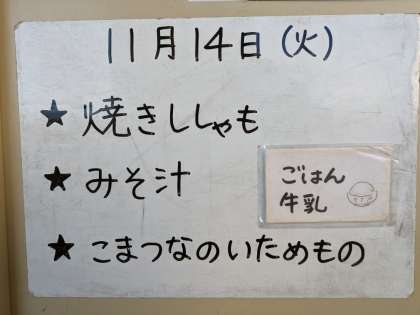 11月14日(火)
★焼きししゃも
★みそ汁
ごはん
牛乳
★こまつなのいためもの